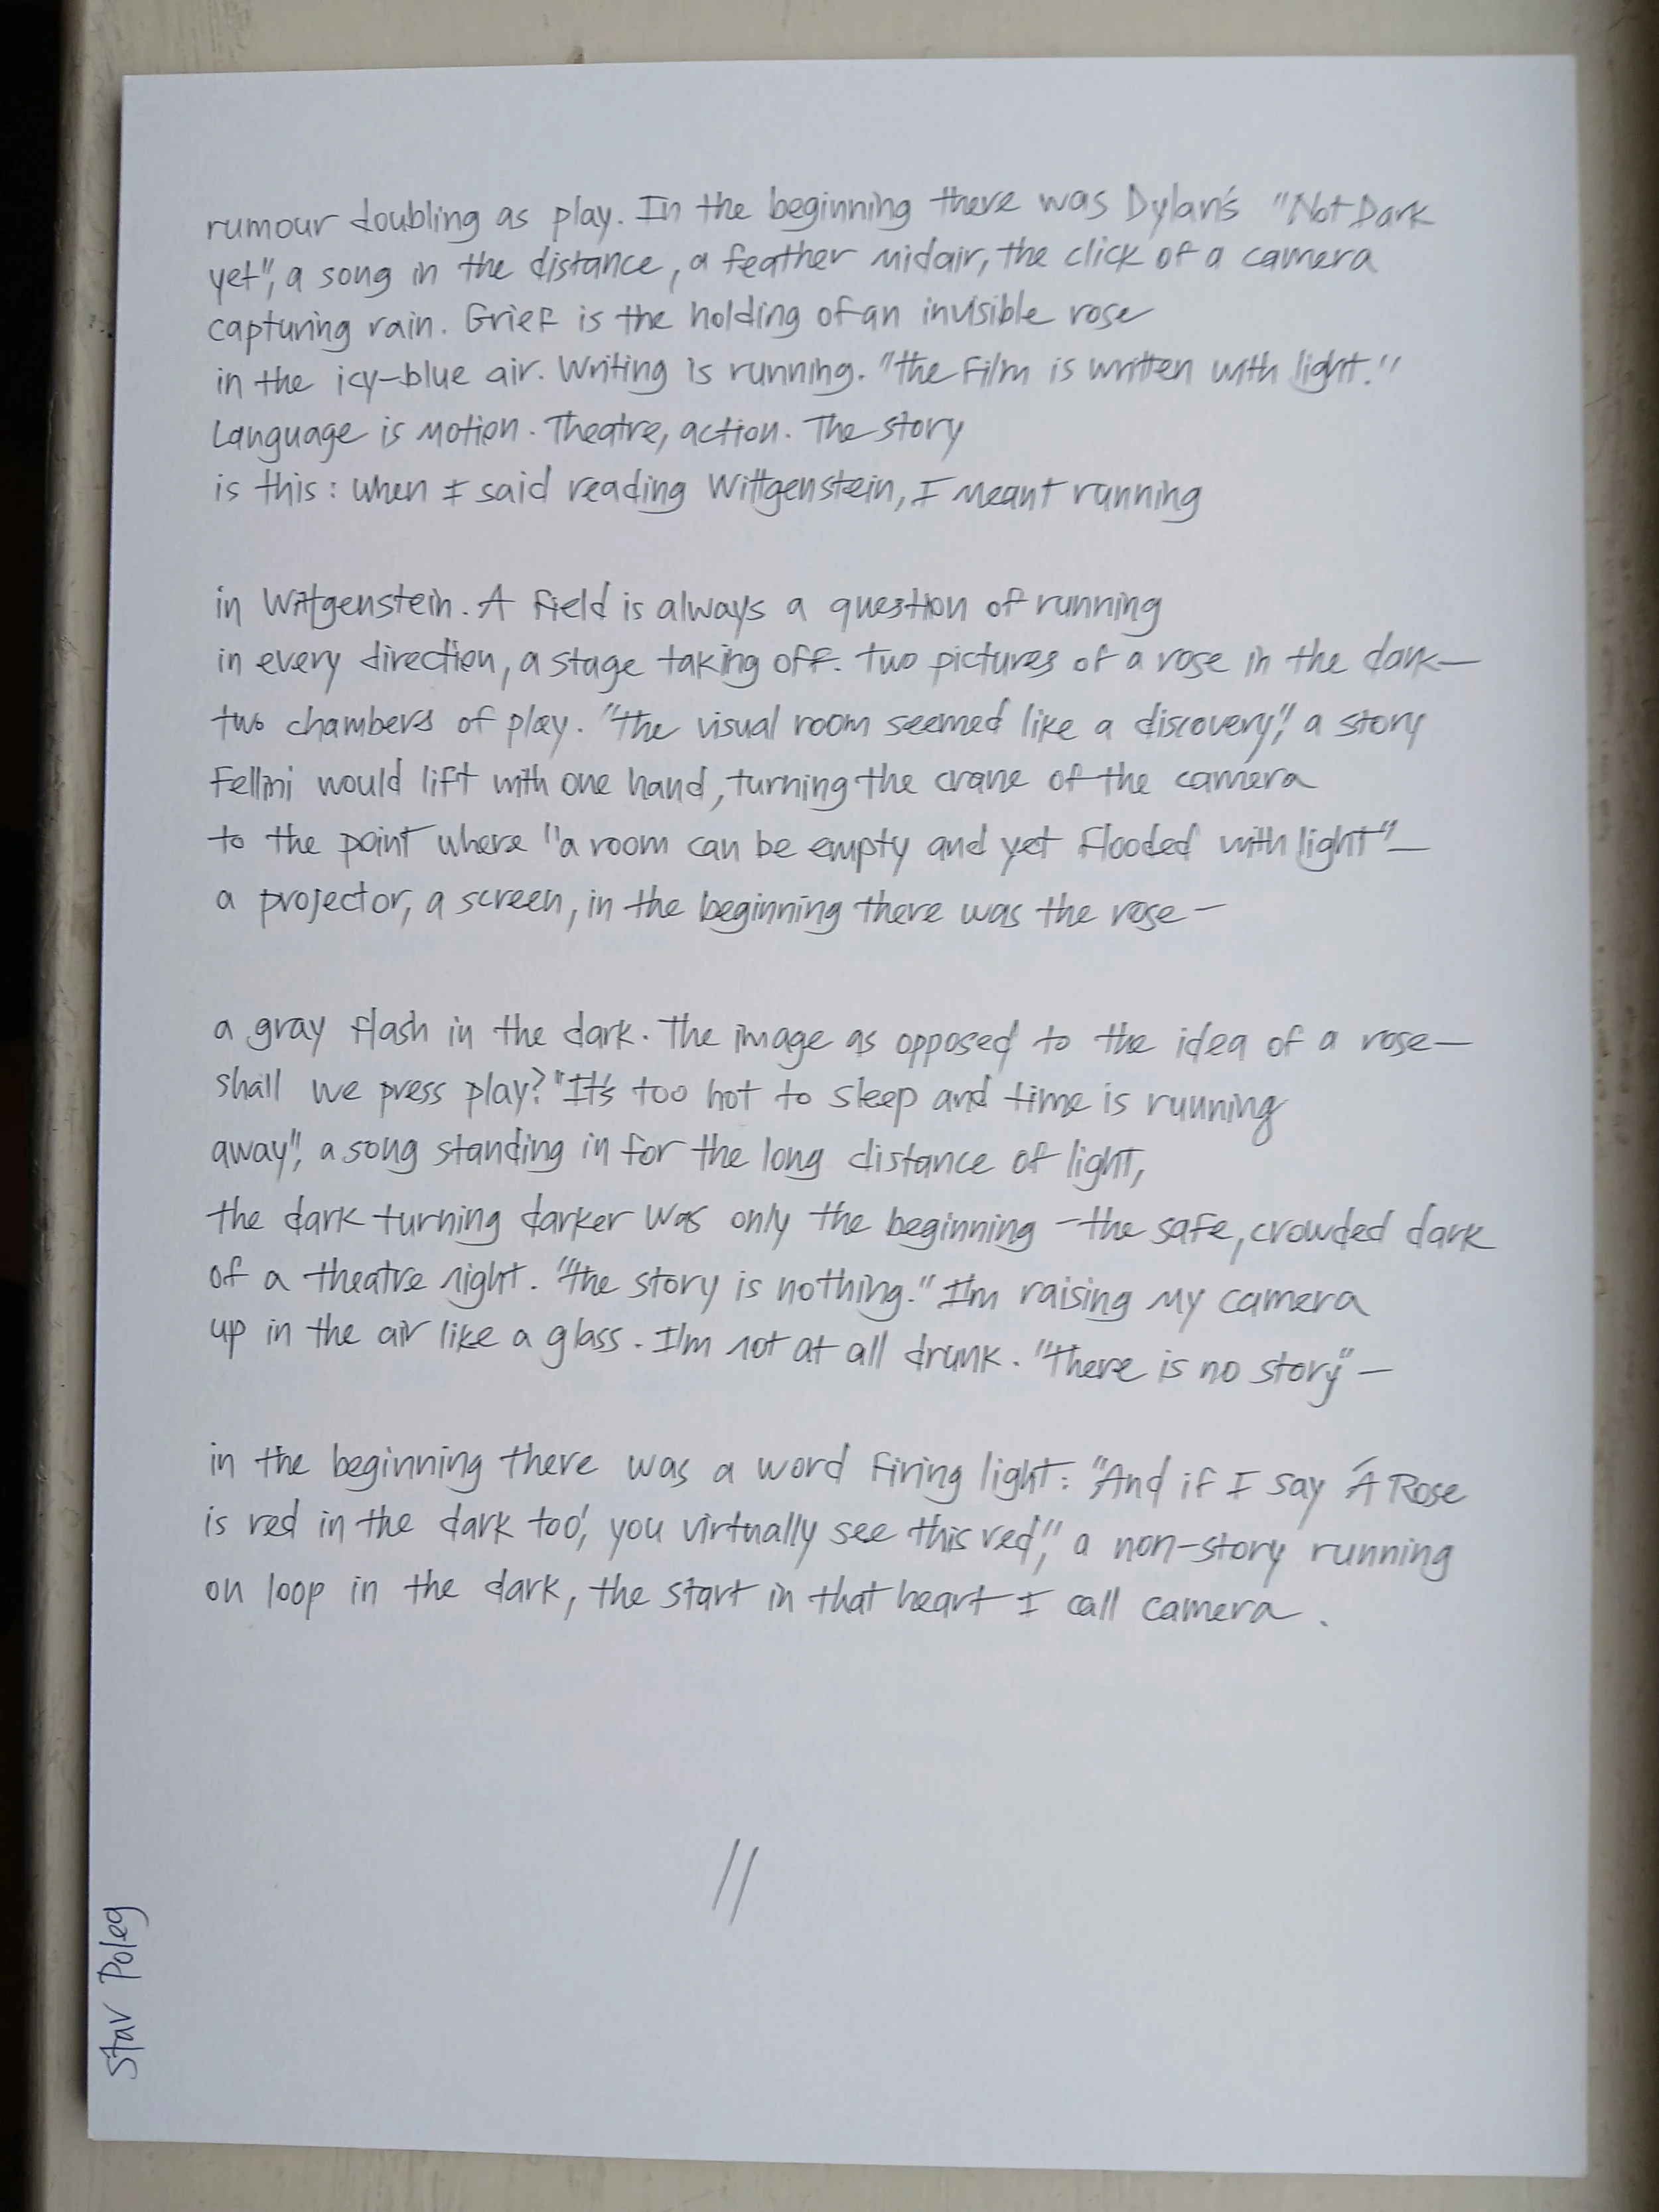 rumour doubling as play. In the beginning there was Dylan's "Not Dark
yet", a song in the distance, a feather midair, the click of a camera
capturing rain. Grief is the holding of an invisible rose
in the icy-blue air. Writing is running. "the film is written with light."
Language is motion. Theatre, action. The story
is this: when I said reading Wittgenstein, I meant running
in Wittgenstein. A field is always a question of running
in every direction, a stage taking off. Two pictures of a rose in the dark—
two chambers of play. "the visual room seemed like a discovery", a story
Fellini would lift with one hand, turning the crane of the camera
to the point where "a room can be empty and yet flooded with light"—
a projector, a screen, in the beginning there was the rose—
a gray flash in the dark. The image as opposed to the idea of a rose—
shall we press play? "It's too hot to sleep and time is running
away", a song standing in for the long distance of light,
the dark turning darker was only the beginning —the safe, crowded dark
of a theatre night. "the story is nothing." I'm raising my camera
up in the air like a glass. I'm not at all drunk. "there is no story"—
in the beginning there was a word firing light: "And if I say 'A Rose
is red in the dark too', you virtually see this red", a non-story running
on loop in the dark, the start in that heart I call camera.
//
Stav Poleg